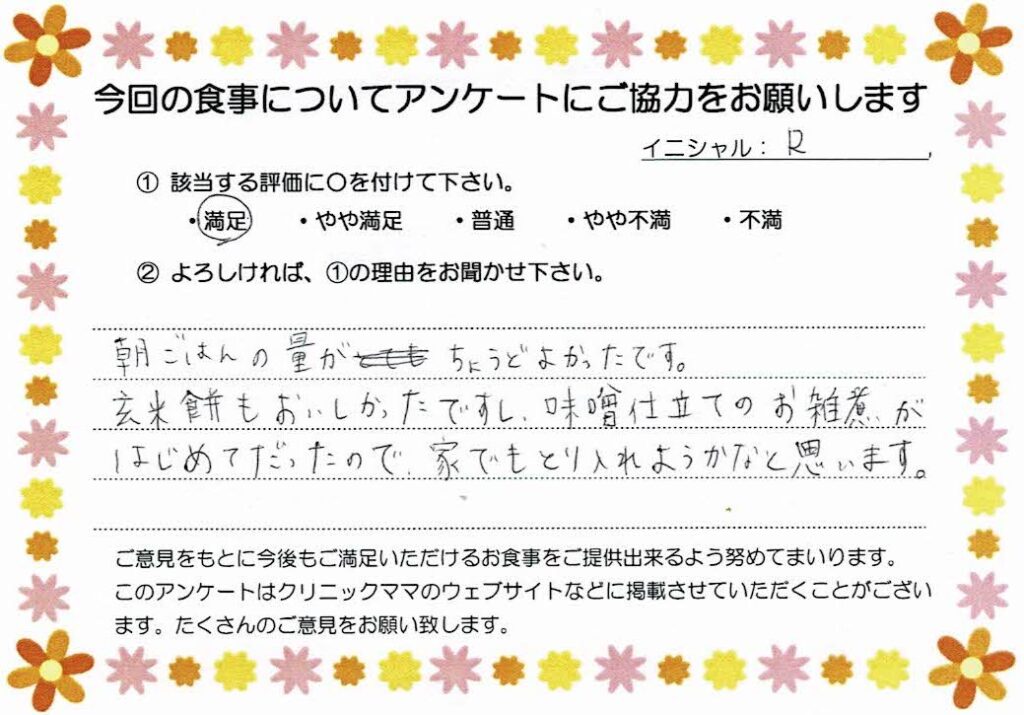 今回の食事についてアンケートにご協力をお願いします
イニシャル： R
① 該当する評価に〇を付けて下さい。
・満足 ・やや満足 ・普通 ・やや不満 ・不満
② よろしければ、①の理由をお聞かせ下さい。
朝ごはんの量がとても ちょうどよかったです。
玄米餅もおいしかったですし、味噌仕立てのお雑煮が
はじめてだったので、家でもとり入れようかなと思います。
ご意見をもとに今後もご満足いただけるお食事をご提供出来るよう努めてまいります。
このアンケートはクリニックママのウェブサイトなどに掲載させていただくことがござい
ます。たくさんのご意見をお願い致します。